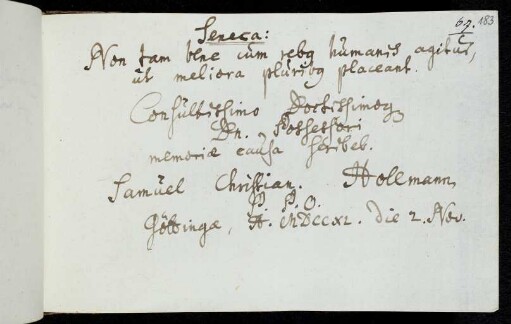 67. 183
Seneca:
Non tam bne cum rebq humanis agitur,
ut meliora pluribq placeant.
Consultissimo Doctissimoq
Dn. Possessori
memoriæ causa scribeb.
Samuel Christian. Hollmann,
P. P. O.
Göttingæ, A. MDCCXL. die 2. Nov.